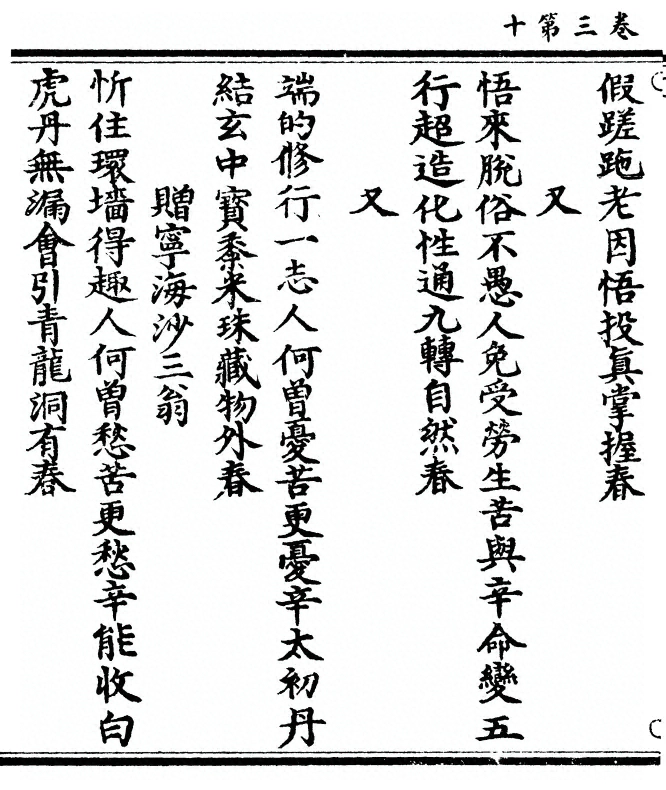 十第三卷
假蹉跎老因悟投真掌握春
又
悟來脫俗不愚人免受勞生苦與辛命變五
行超造化性通九轉自然春
又
端的修行一志人何曾憂苦更憂辛太初丹
結玄中寶黍米珠藏物外春
贈寧海沙三翁
忻住環墻得趣人何曾愁苦更愁辛能收白
虎丹無漏會引青龍洞有春